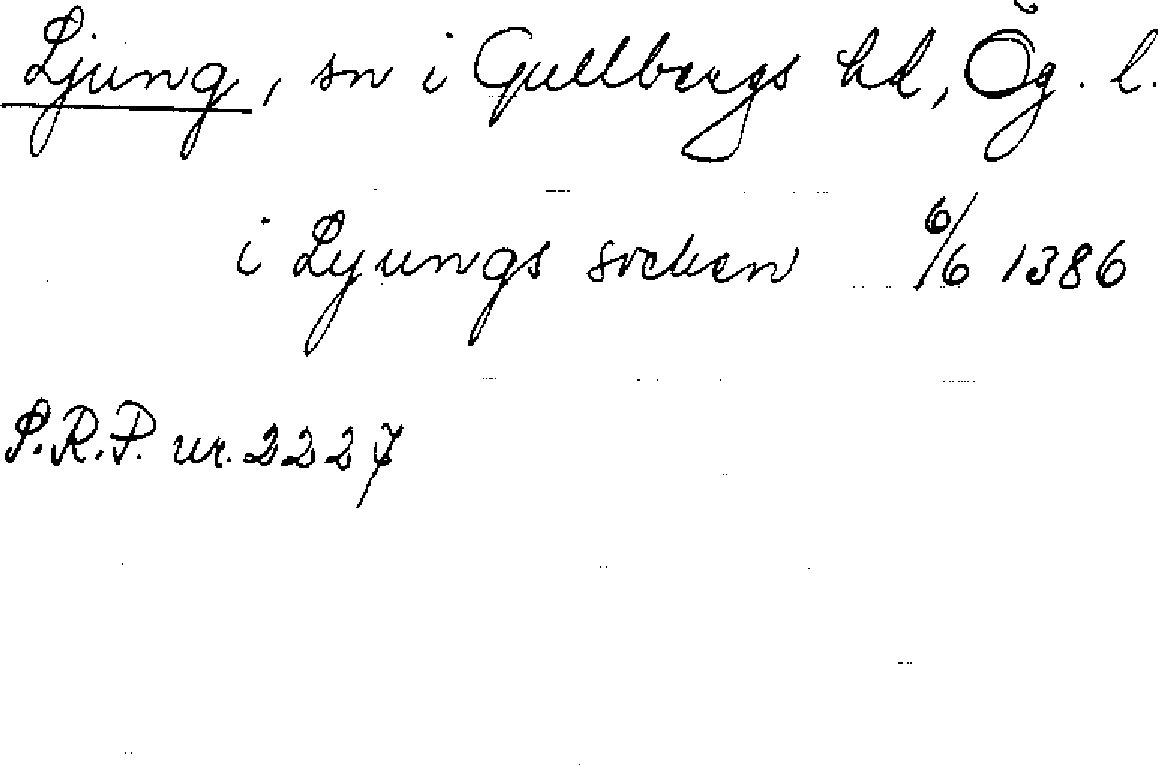 Ljung, sn i Gullbergs hd, Ög. l.
i Lyungs socken 6/6 1386
S.R.P. nr. 2227